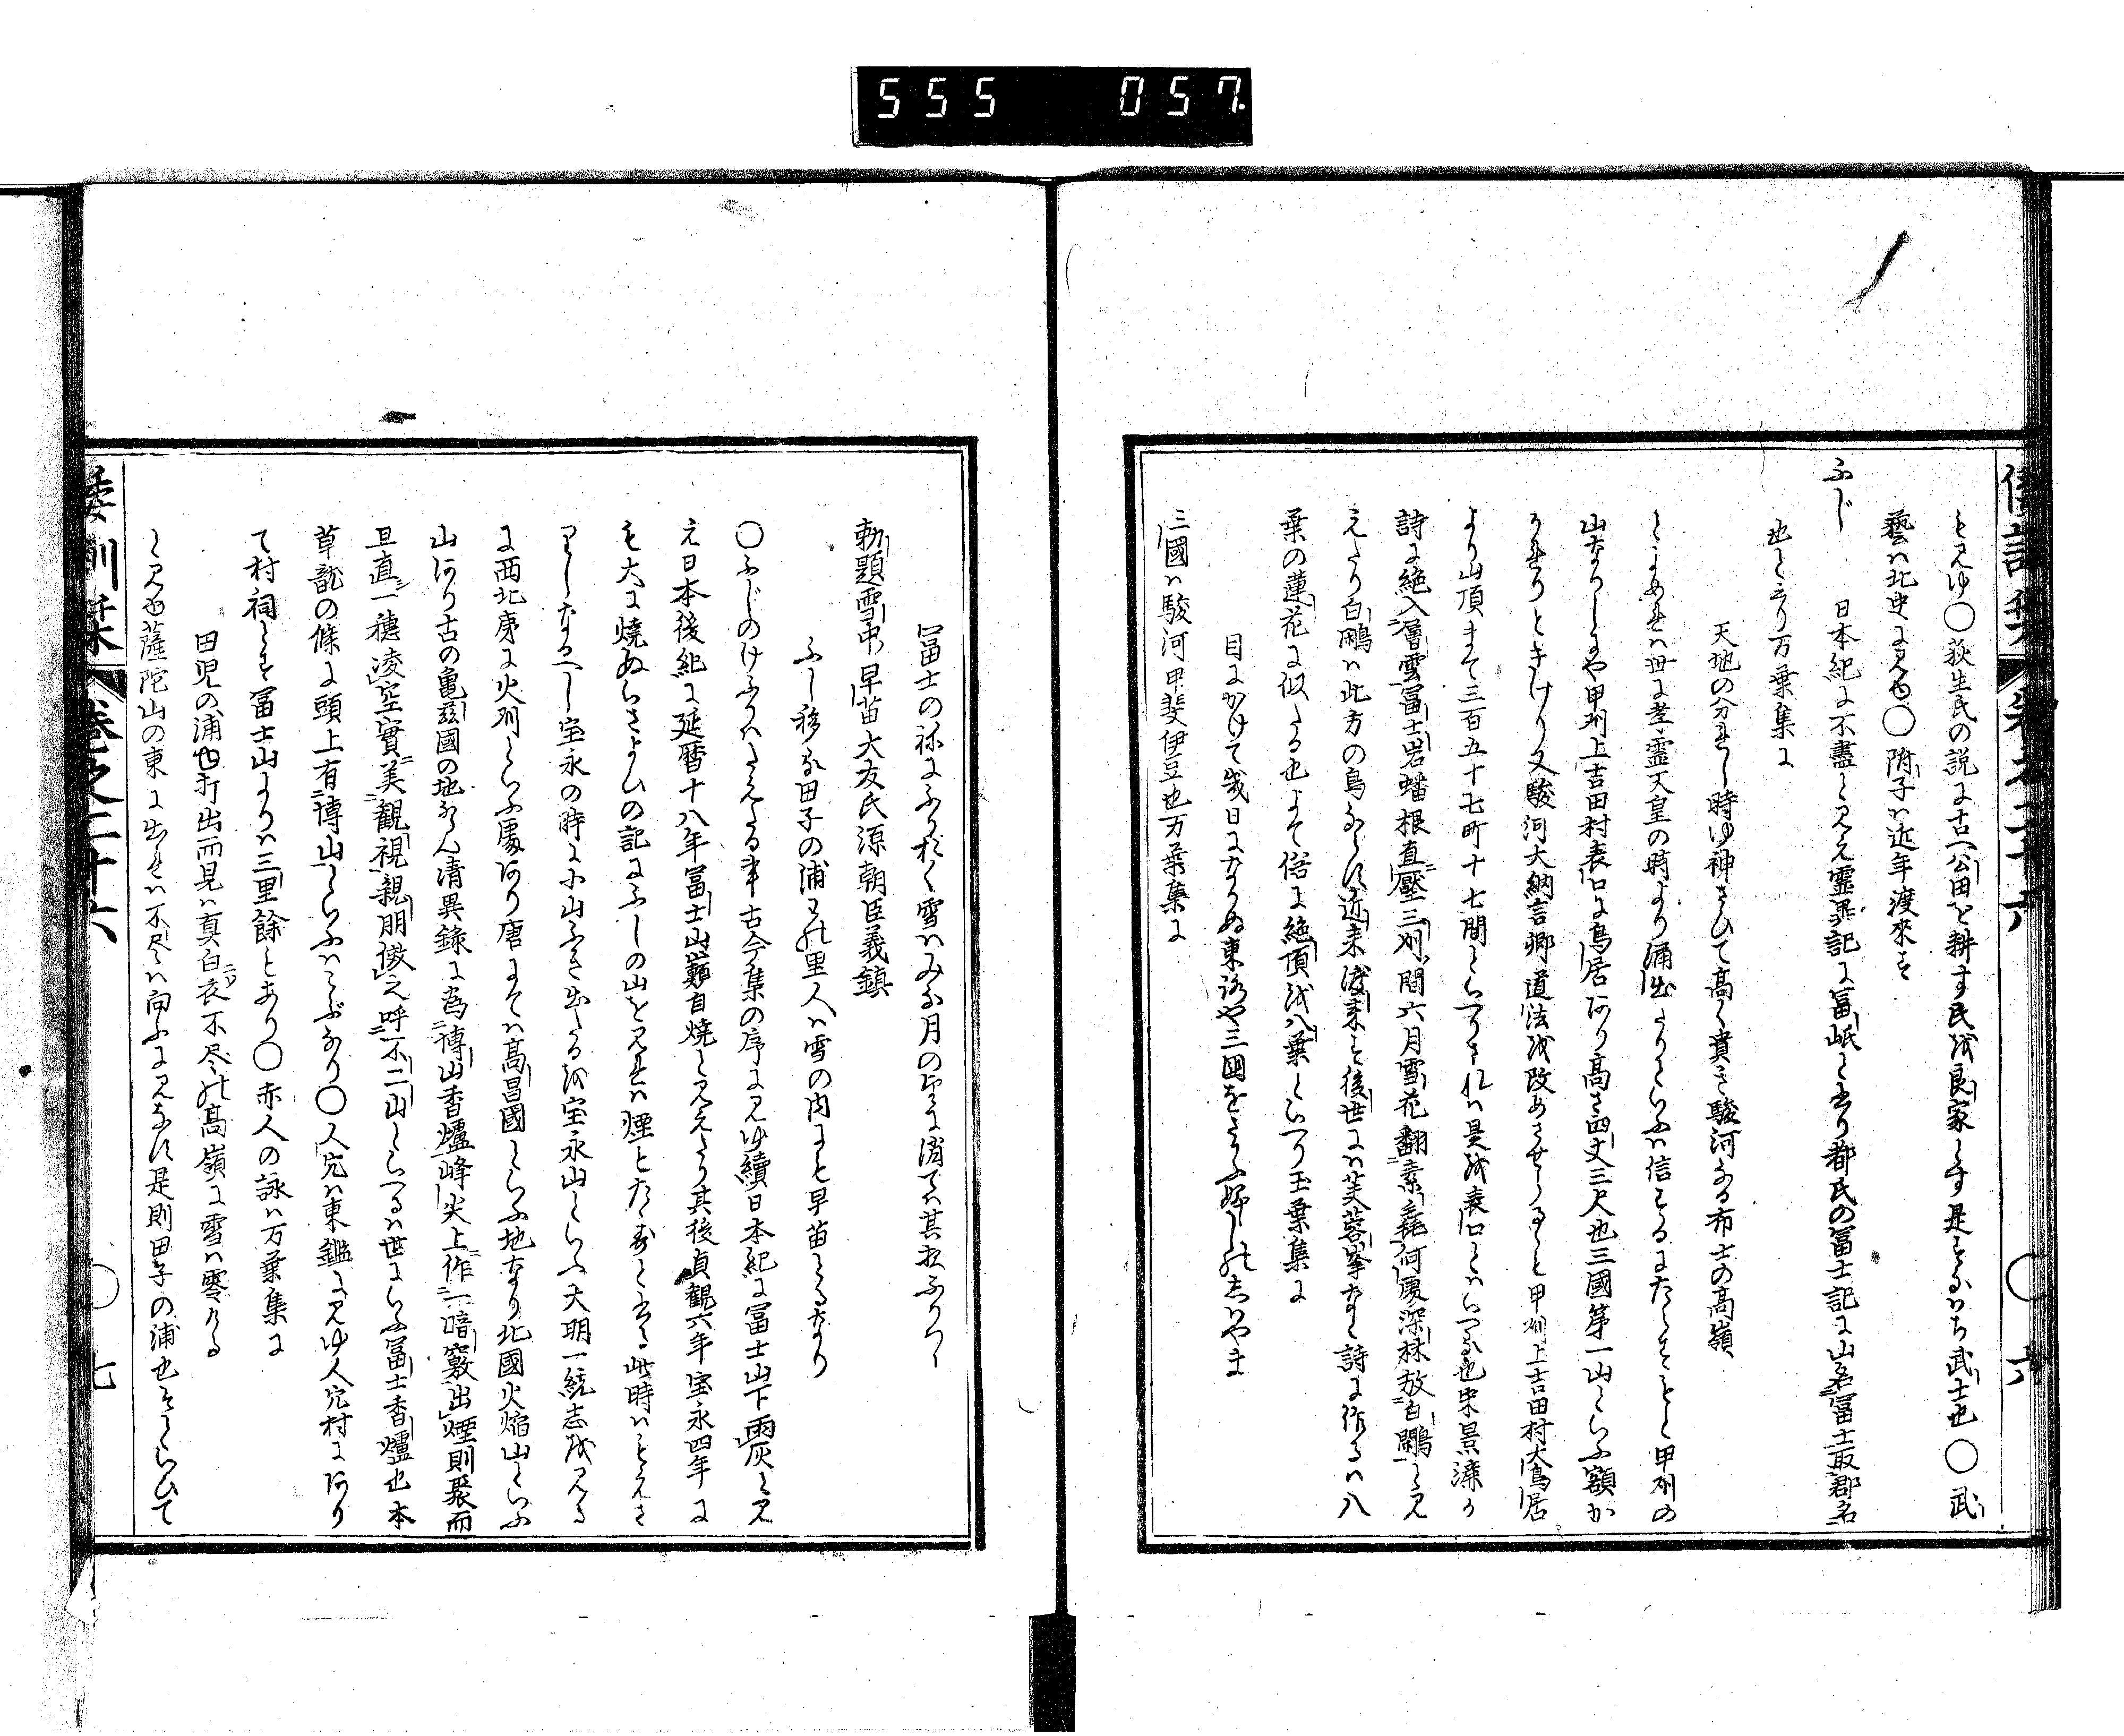 555 057
とみゆ〇荻生氏の説に古へ公田を耕す民を良家とす是すなはち武士也〇武
藝ハ北史にみゆ〇附子ハ近年渡來す
ふじ 日本紀に不盡とみえ霊異記に冨岻と書り都氏の冨士記に山名冨士取郡名
也といへり万葉集に
天地の分れし時ゆ神さひて高く貴き駿河なる布士の高嶺
とよめれハ世に孝霊天皇の時より涌出たりといふハ信するにたらすそもそも甲州の
山なりしにや甲州上吉田村表口に鳥居あり高さ四丈三尺也三國第一山といふ額か
かれりとそ
より山頂まて三百五十七町十七間といへりされハ是を表口とハいへる也宋景濂か
詩に絶入層雲冨士岩蟠根直壓三州間六月雪花翻素毳何處深林放白鷴とみ
えたり白鷴ハ此方の鳥ならす近来渡来す後世にハ芙蓉峯なと詩に作るハ八
葉の蓮花に似たる也よて俗に絶頂を八葉といへり玉葉集に
目にかけて幾日になりぬ東路や三國をさかふふしの志はやま
三國ハ駿河甲斐伊豆也万葉集に
倭訓栞 巻之二十六 〇六
冨士の祢にふりおく雪ハみな月の望に消てハ其夜ふりつゝ
勅題雪中早苗大友氏源朝臣義鎮
ふし移る田子の浦わの里人ハ雪の内にも早苗とるなり
〇ふじのけふりハたえたる事古今集の序にみゆ續日本紀に冨士山下雨灰とみ
え日本後紀に延暦十八年冨士山巓自焼とみえたり其後貞観六年宝永四年に
も大に焼ぬ
いさよひの記にふしの山をみれハ煙もたゝすと書く此時ハもえさ
りしなるへし宝永の時に小山ふき出たるを宝永山といふ大明一統志をみる
に西北虜に火州といふ處あり唐まてハ高昌國といふ地なり北國火焔山といふ
山あり古の亀茲國の地ならん清異録に為博山香爐峰尖上作一暗竅出煙則聚而
且直一穂淩空實美観視親朋傚之呼不二山といへるハ世にいふ冨士香爐也本
草龍の條に頭上有博山といふハこぶなり〇人穴ハ東鑑にみゆ人穴村にあり
て村祠とす冨士山よりハ三里餘とあり〇赤人の詠ハ万葉集に
田児の浦也打出而見ハ真白衣不尽の高嶺に雪ハ零ける
とみゆ薩陀山の東に出れハ不尽ハ向ふにみなす是則田子の浦也そといひて
倭訓栞 巻之二十六 〇七